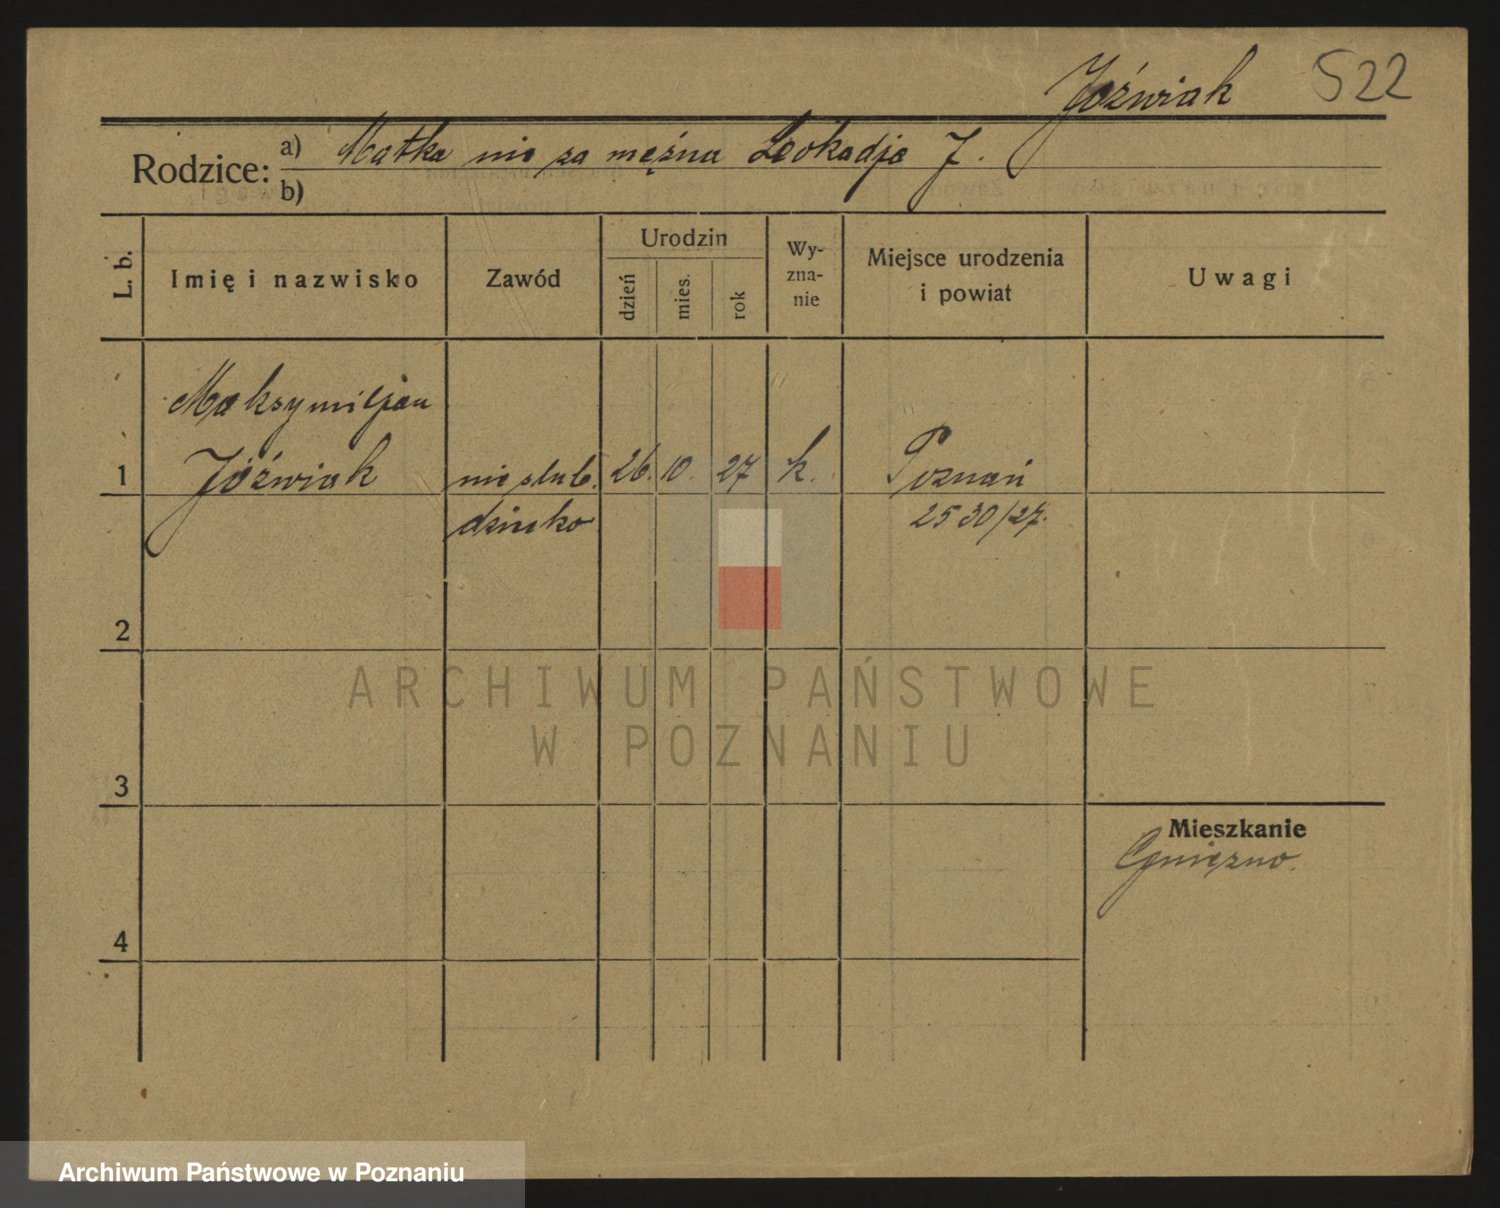 Jóźwiak 522
Rodzice: a) Matka nie za mężna Leokadja J.
b)
L. b.
Imię i nazwisko
Zawód
Urodzin
dzień
mies.
rok
Wy-
zna-
nie
Miejsce urodzenia
i powiat
Uwagi
Maksymiljan
1 Jóźwiak nieślub. 26. 10. 27 k. Poznań
dziecko 2530/27.
2
ARCHIWUM PAŃSTWOWE
W POZNANIU
3
Mieszkanie
Gniezno.
4
Archiwum Państwowe w Poznaniu